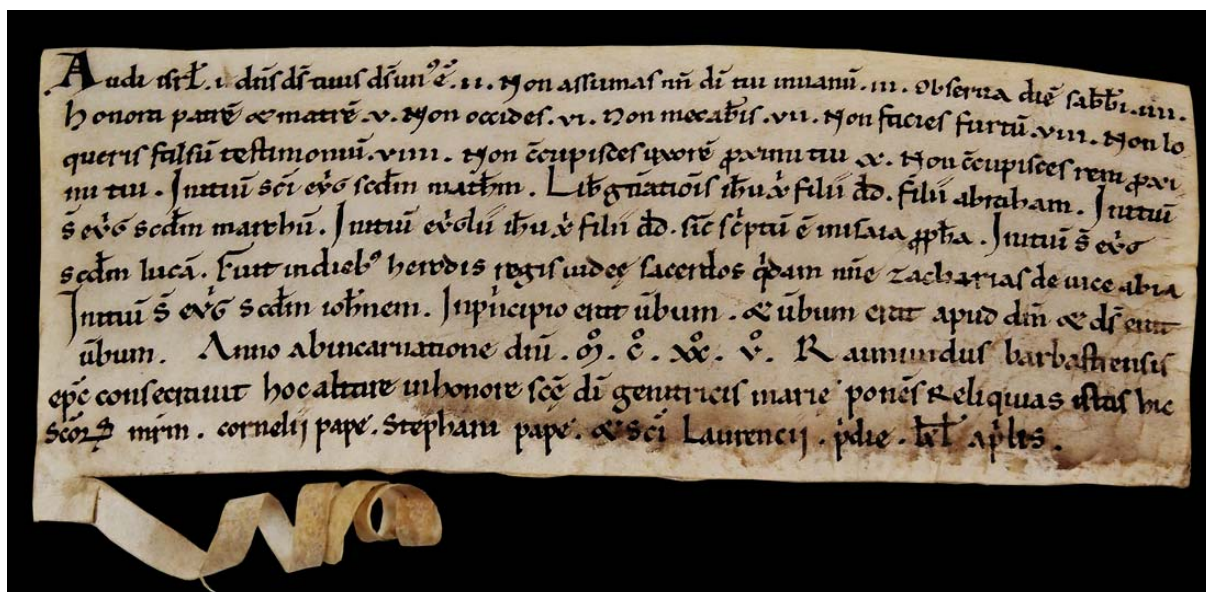 Audi isrł. i. dn̄s ds̄ tuus ds̄ un᷒ ē. ii. Non assumas nn̄ dı̄ tui inuanū. iii. Obserua diē sabb̄i. iiii.
honora patrē & matrē. v. Non occides. vi. Non mecab̄is. vii. Non facies furtū. viii. Non lo
queris falsū testimoniū. viiii. Non c̄cupisces uxorē ꝓximi tui. x. Non c̄cupisces rem ꝓxi
mi tui. Initiū sc̄i eṽg scd̄m math̄m. Lib̄ gn̄ationis ih̄u xp̄i filii dd̄. filii abraham. Initiū
s̄ eṽg scd̄m marchū. Initiū eṽglii ih̄u xp̄i filii dd̄. sic̄ sc̄ptū ē inisaia ꝓph̄a. Initiū s̄ eṽg
scd̄m lucā. Fuit indieb᷒ herodis regis iudeę sacerdos q̄dam nn̄e zacharias de uice abia
Initiū s̄ eṽg scd̄m ioh̄nem. Inp̄ncipio erat ūbum. & ūbum erat apud dm̄ & ds̄ erat
ūbum. Anno abincarnatione dn̄i. ṁ. c̊. xx̊. v̊. Raimundus barbastrensis
epc̄ consecrauit hoc altare inhonore scę̄ dı̄ genitricis marie ponēs Reliquias istas hic
scōꝝ mr̄m. cornelii pape. Stephani pape. & sc̄i Laurencii. p̄die. kł ap̄lis.